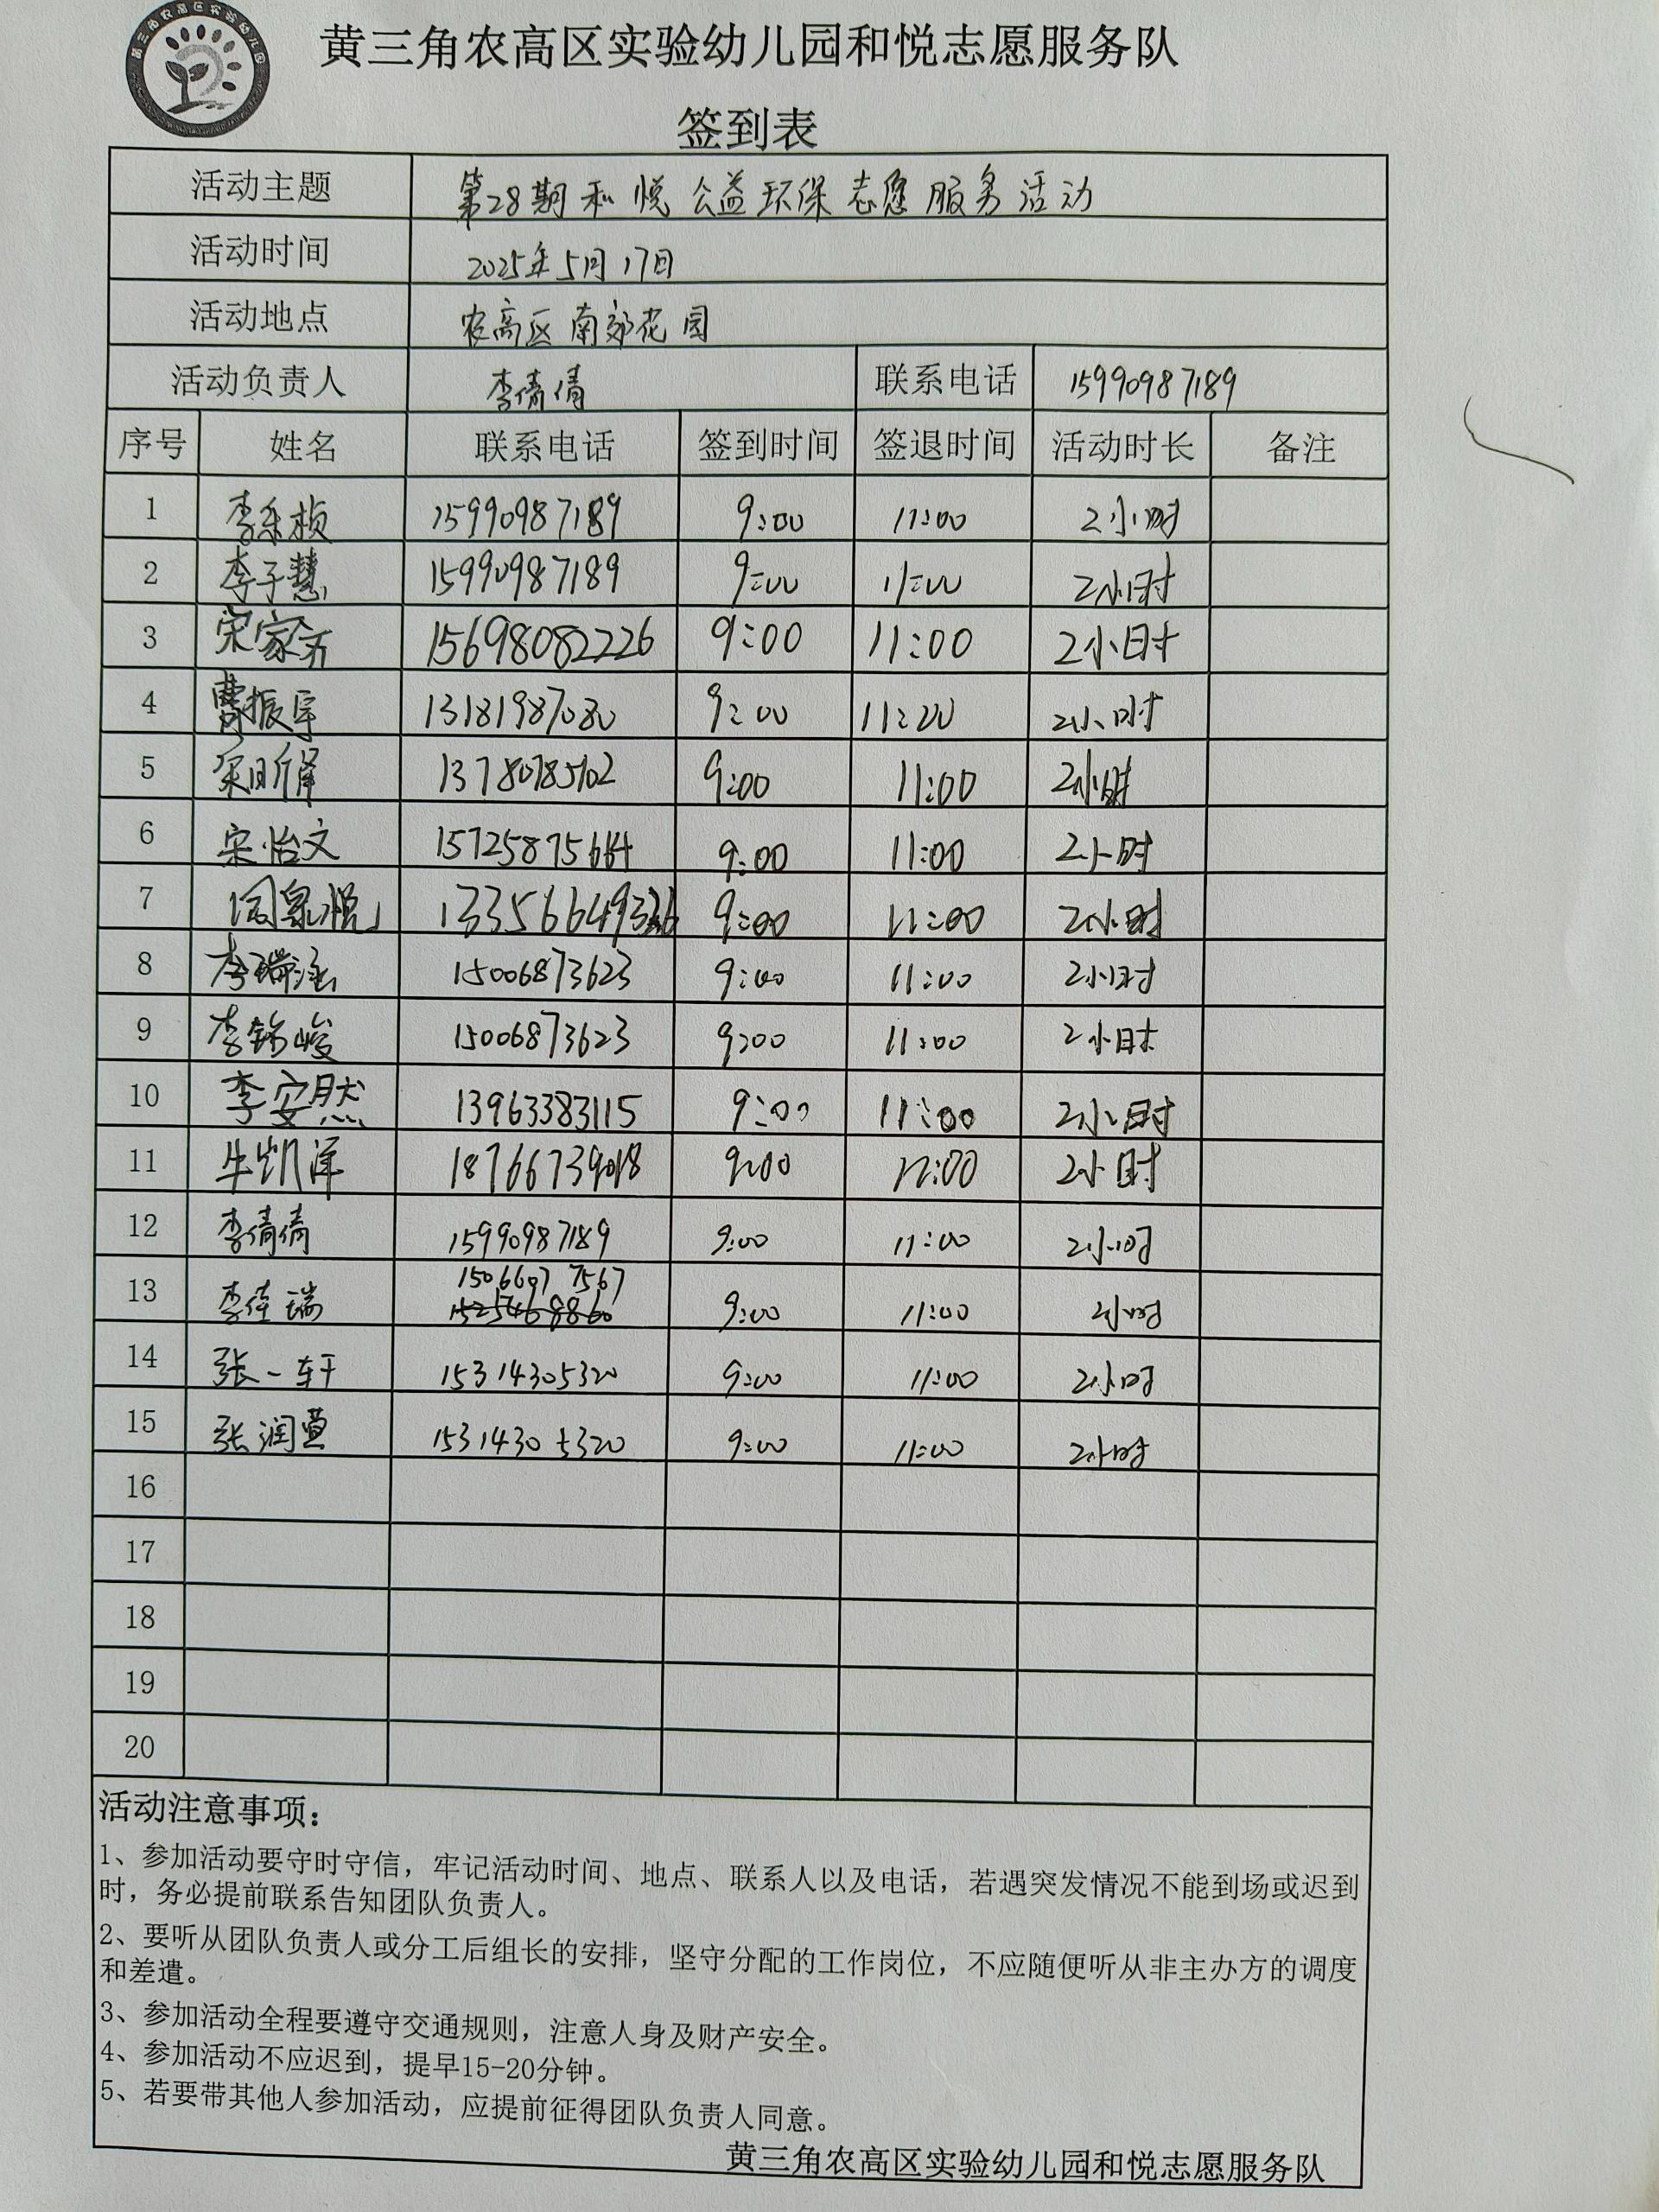 黄三角农高区实验幼儿园
黄三角农高区实验幼儿园和悦志愿服务队
签到表
活动主题 第28期和悦公益环保志愿服务活动
活动时间 2025年5月17日
活动地点 农高区南郊花园
活动负责人 李倩倩 联系电话 15990987189
序号 姓名 联系电话 签到时间 签退时间 活动时长 备注
1 15990987189 9:00 11:00 2小时
2 李子慧 15990987189 9:00 11:00 2小时
3 宋家齐 15698082226 9:00 11:00 2小时
4 曹振宇 13181987080 9:00 11:00 2小时
5 9:00 11:00 2小时
6 宋怡文 9:00 11:00 2小时
7 9:00 11:00 2小时
8 15006873623 9:00 11:00 2小时
9 李锦峻 15006873623 9:00 11:00 2小时
10 李安然 13963383115 9:00 11:00 2小时
11 牛凯泽 9:00 2小时
12 李倩倩 15990987189 9:00 11:00 2小时
13 李佳瑞 15066977567 9:00 11:00 2小时
15254688860
14 张一轩 15314305320 9:00 11:00 2小时
15 张润萱 15314305320 9:00 11:00 2小时
16
17
18
19
20
活动注意事项：
1、参加活动要守时守信，牢记活动时间、地点、联系人以及电话，若遇突发情况不能到场或迟到
时，务必提前联系告知团队负责人。
2、要听从团队负责人或分工后组长的安排，坚守分配的工作岗位，不应随便听从非主办方的调度
和差遣。
3、参加活动全程要遵守交通规则，注意人身及财产安全。
4、参加活动不应迟到，提早15-20分钟。
5、若要带其他人参加活动，应提前征得团队负责人同意。
黄三角农高区实验幼儿园和悦志愿服务队